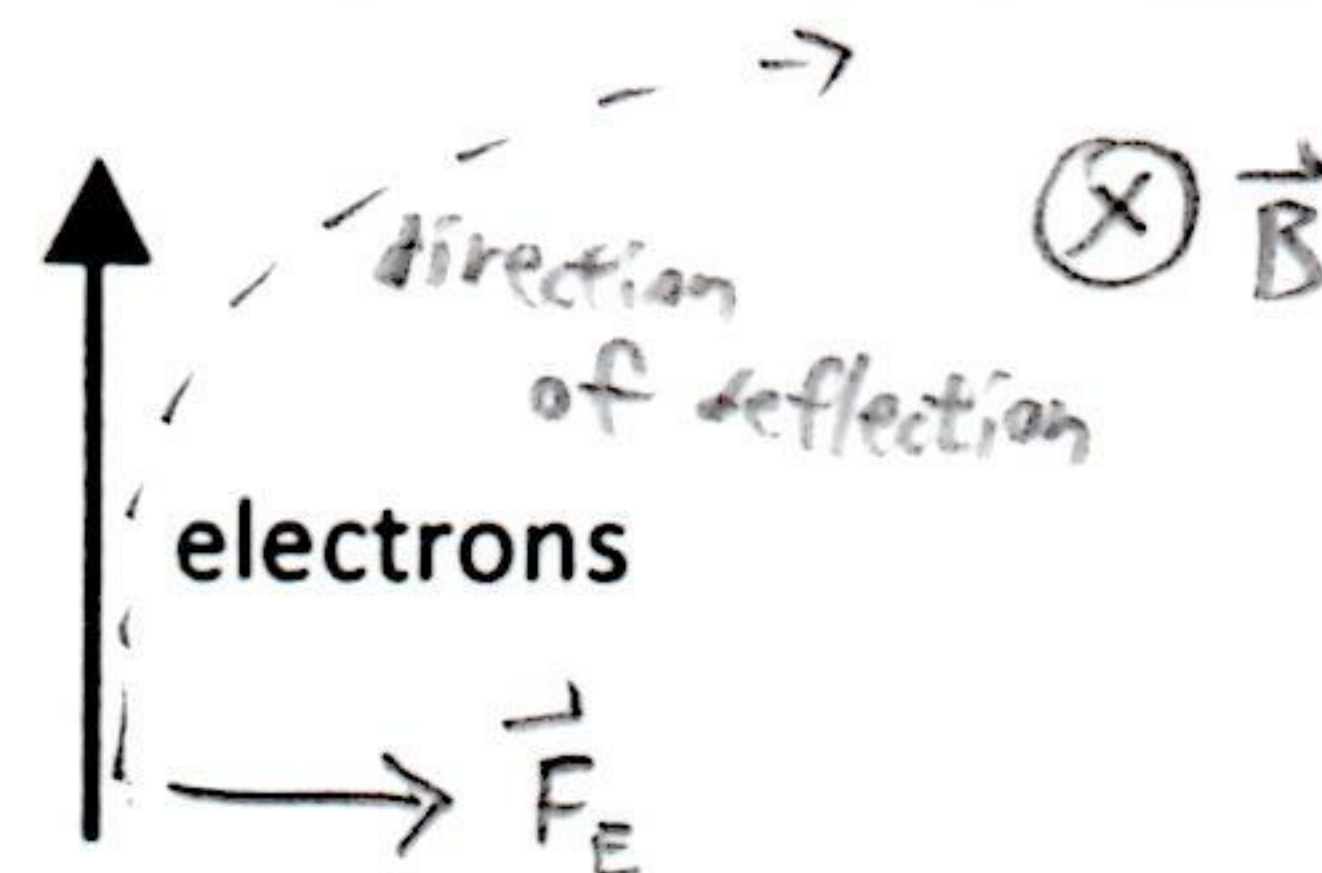 direction
of deflection
⊗ B⃗
electrons
F⃗_E